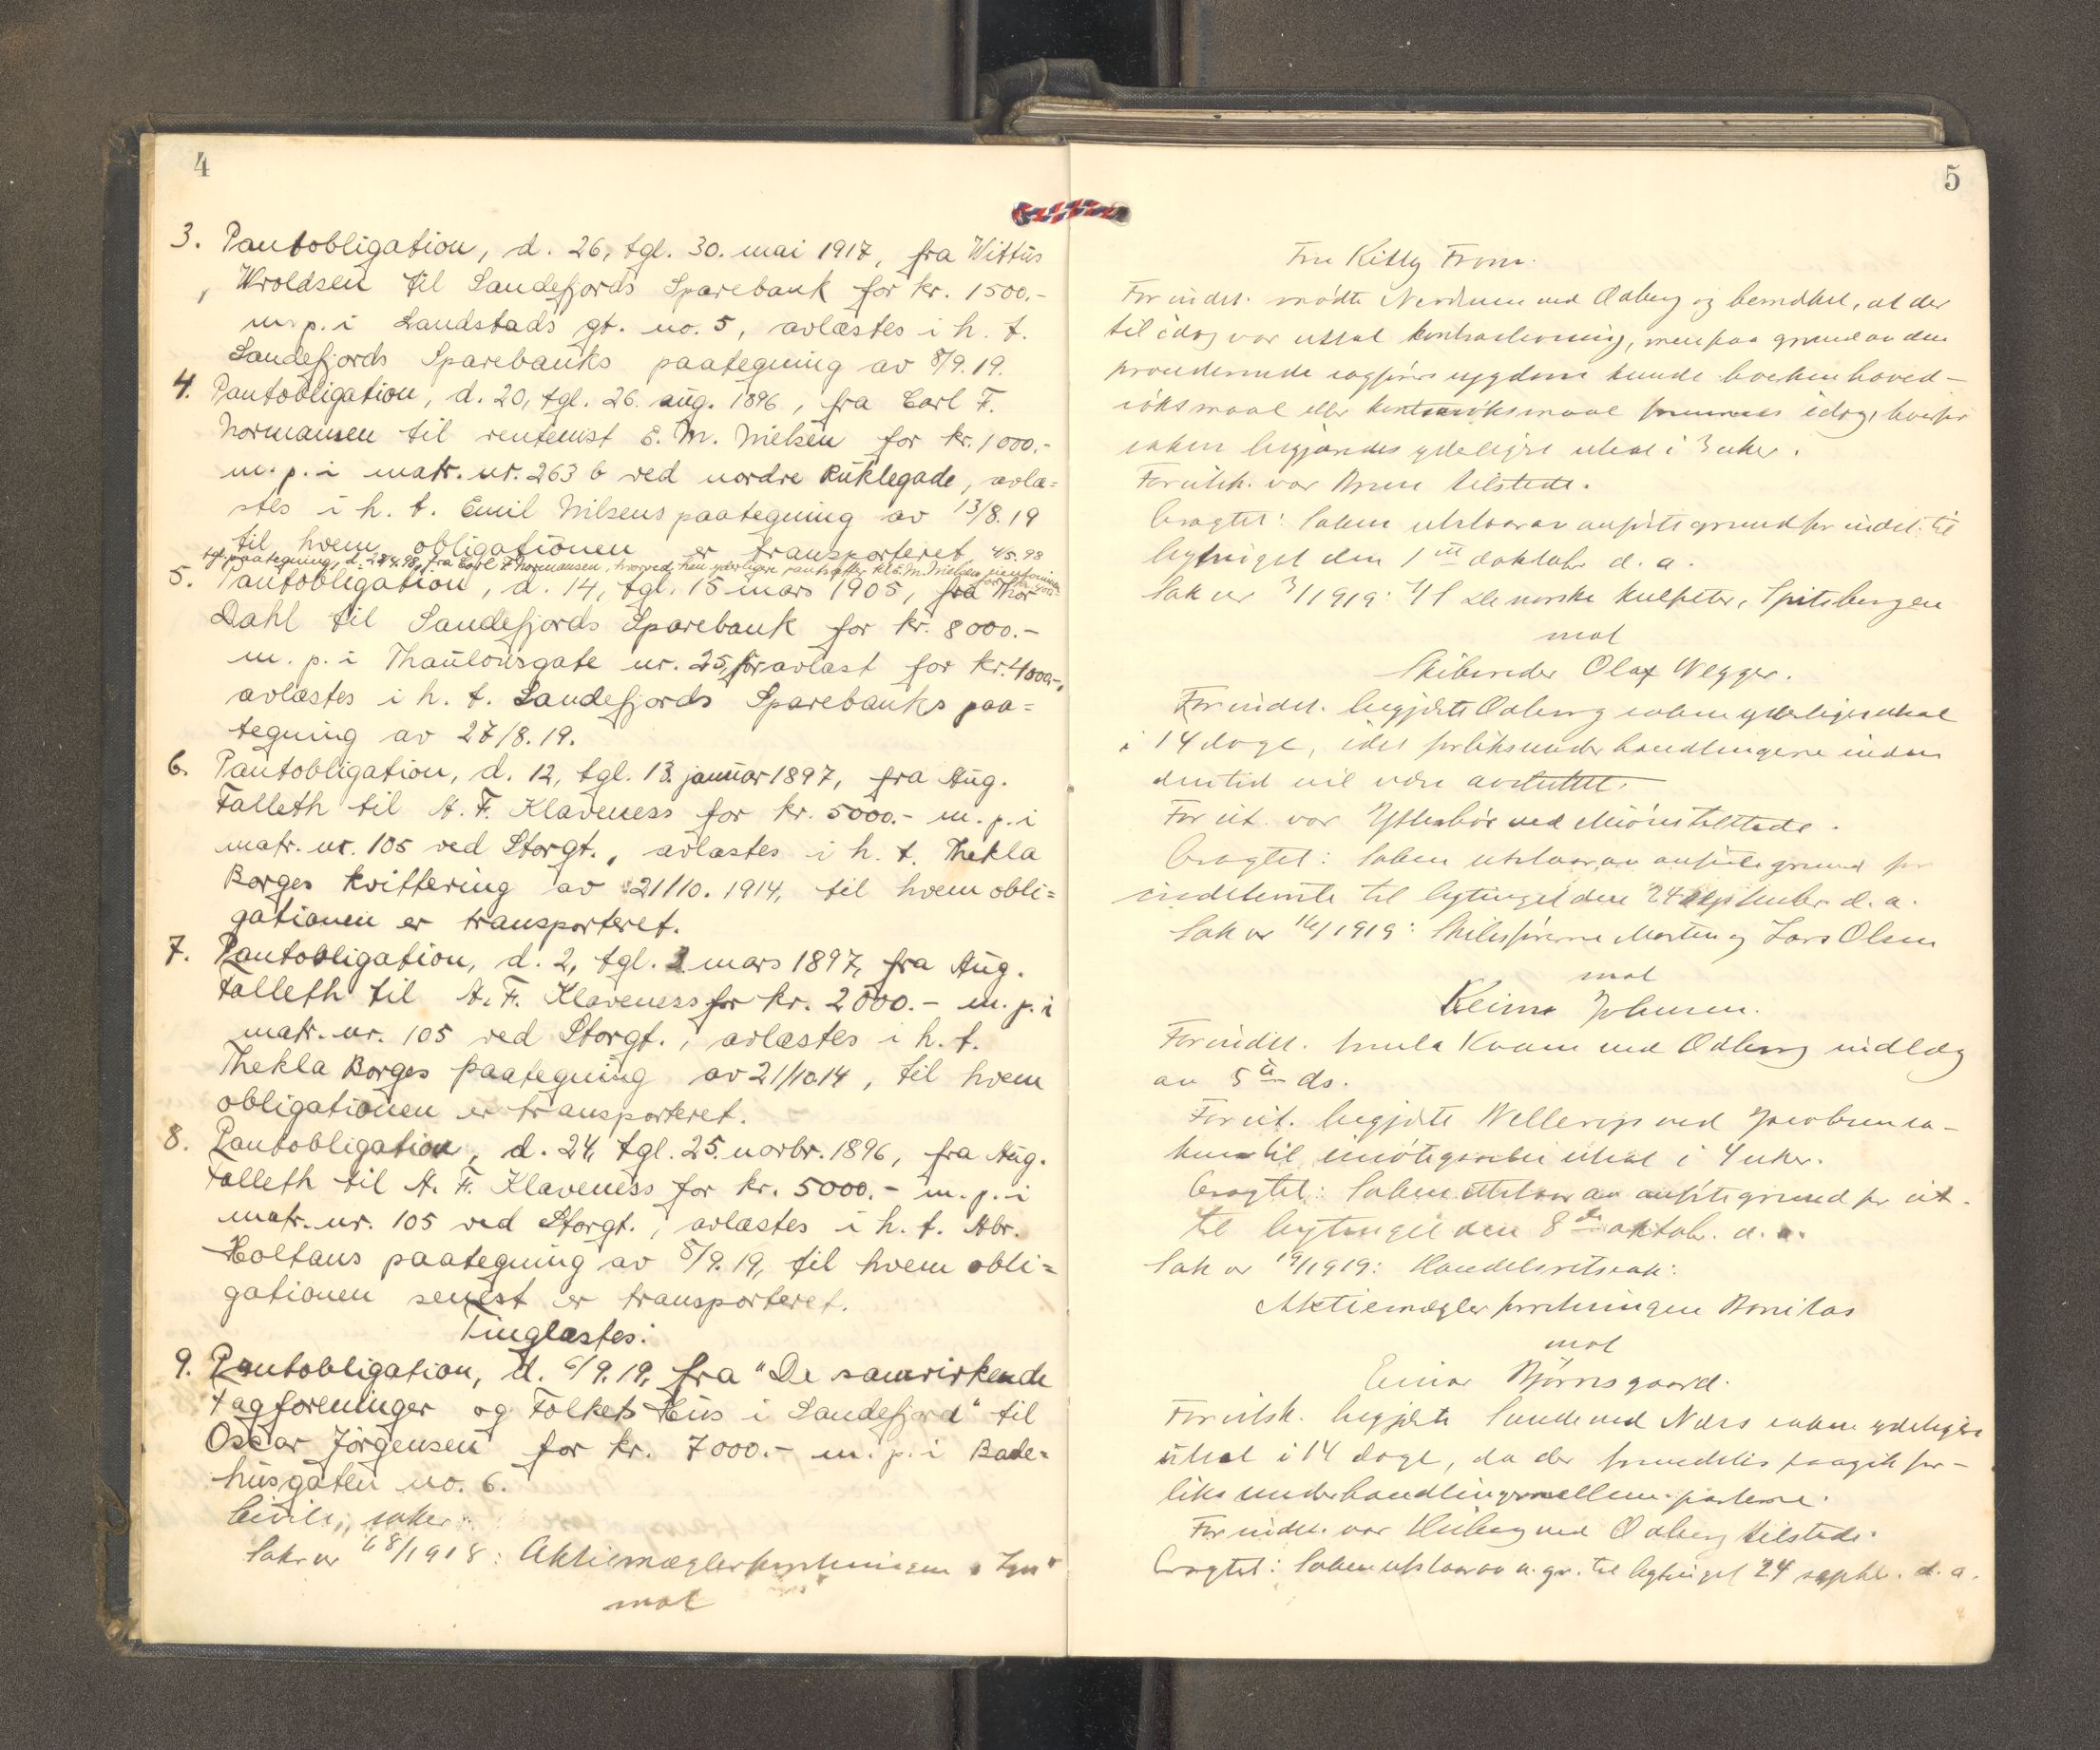 4
3. Pantobligation, d. 26, tgl. 30. mai 1917, fra Wittus
Wroldsen til Sandefjords Sparebank for kr. 1500.-
m. p. i Landstads gt. no. 5, avlæstes i h. t.
Sandefjords Sparebanks paategning av 8/9.19.
4. Pantobligation, d. 20, tgl. 26. aug. 1896, fra Carl F.
Normansen til rentenist E. M. Nielsen for kr. 1000.-
m. p. i matr. nr. 263 b ved nordre Ruklegade, avlæ=
stes i h. t. Emil Nilsens paategning av 13/8.19
til hvem obligationen er transporteret,
tgl. paategning, d. fra Carl F Normansen, hvorved han yderligere pantsætter til E. M. Nielsen
5. Pantobligation, d. 14, tgl. 15 mars 1905, fra Thor
Dahl til Sandefjords Sparebank for kr. 8000.-
m. p. i Thaulowsgate nr. 25, før avlæst for kr. 4000.-,
avlæstes i h. t. Sandefjords Sparebanks paa=
tegning av 27/8.19.
6. Pantobligation, d. 12, tgl. 13. januar 1897, fra Aug.
Falleth til A. F. Klaveness for kr. 5000.- m. p. i
matr. nr. 105 ved Storgt., avlæstes i h. t. Thekla
Borges kvittering av 21/10. 1914, til hvem obli=
gationen er transporteret.
7. Pantobligation, d. 2, tgl. 2. mars 1897, fra Aug.
Falleth til A. F. Klaveness for kr. 2000.- m. p. i
matr. nr. 105 ved Storgt., avlæstes i h. t.
Thekla Borges paategning av 21/10.14, til hvem
obligationen er transporteret.
8. Pantobligation, d. 24, tgl. 25. novbr. 1896, fra Aug.
Falleth til A. F. Klaveness for kr. 5000.- m. p. i
matr. nr. 105 ved Storgt., avlæstes i h. t. Abr.
Holtans paategning av 8/9.19, til hvem obli=
gationen senest er transporteret.
Tinglæstes:
9. Pantobligation, d. 6/9.19, fra "De samvirkende
Fagforeninger og Folkets Hus i Sandefjord" til
Oscar Jörgensen for kr. 7000.- m. p. i Bade=
husgaten no. 6.
Civile saker:
Sak nr 68/1918: Aktiemæglerforretningen
mot
5
Fru Kitty From.
For indst. mødte ved Odberg og bemerket, at der
til idag var utsat kontrastevning, men paa grund av den
sagførers sygdom kunde hverken hoved-
søksmaal eller kontrasøksmaal fremmes idag, hvorfor
saken begjæredes yderligere utsat i 3 uker.
For utsk. var Bruun tilstede.
Eragtet: Saken utstaar av anførte grund for indst. til
bytinget den 1ste oktobr d. a.
Sak nr 3/1919: A/S De norske kulfelter, Spitsbergen
mot
Skibsreder Olaf Wegger.
For indst. begjærte Odberg saken yderligere utsat
i 14 dage, idet forliksunderhandlingerne inden
den tid vil være avsluttet.
For ut. var Ytterbøe ved tilstede.
Eragtet: Saken utstaar av anførte grund for
indstevnte til bytinget den 24 septembr. d. a.
Sak nr 16/1919: Skibsførerne Morten og Lars Olsen
mot
Keima Johnsen.
For indst. Kvam ved Odberg indlæg
av 5te ds.
For ut. begjærte Wellerop ved Jacobsen sa-
ken til imøtegaaelse utsat i 4 uker.
Eragtet: Saken utstaar av anførte grund for ut.
til bytinget den 8de oktobr. d. a.
Sak nr 19/1919: Handelsretssak:
Aktiemæglerforretningen Bonitas
mot
Einar Bjørnsgaard.
For utsk. begjærte Sunde ved Næss saken yderligere
utsat i 14 dage, da der fremdeles paagik for-
liksunderhandlinger mellem parterne.
For indst. var ved Odberg tilstede.
Eragtet: Saken utstaar av a. gr. til bytinget 24 septbr. d. a.